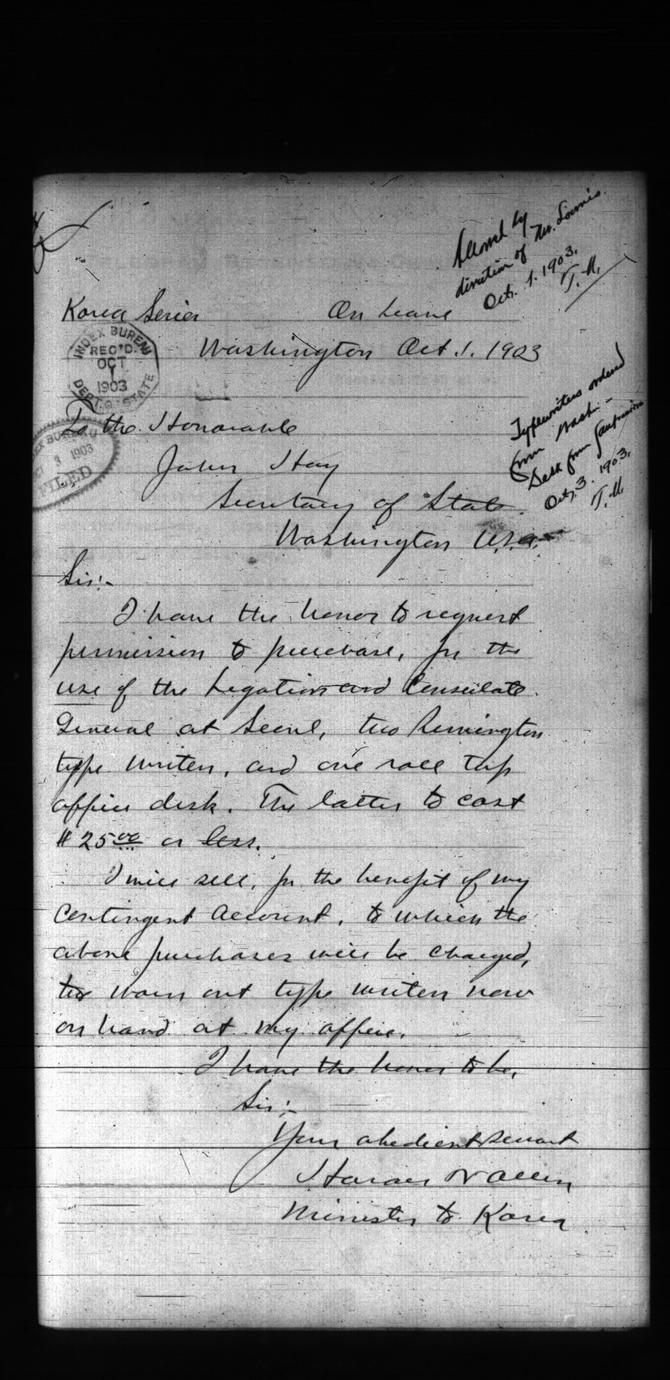 direction of Mr. Loomis
Oct. 1. 1903.
T. M.
Korea Series On Leave
Washington Oct. 1. 1903
INDEX BUREAU
REC'D.
OCT
1
1903
DEPT. OF STATE
To the Honorable
John Hay
Secretary of State.
Washington U.S.A.
BUREAU
3 1903
FILED
Typewriters ordered
from Wash. -
Desk from San Francisco
Oct. 3. 1903.
T. M.
Sir:-
I have the honor to request
permission to purchase, for the
use of the Legation and Consulate
General at Seoul, two Remington
type writers, and one roll top
office desk. The latter to cost
$25.00 or less.
I will sell, for the benefit of my
Contingent Account, to which the
above purchases will be charged,
two worn out type writers now
on hand at my office.
I have the honor to be,
Sir:-
Your obedient servant
Horace N Allen
Minister to Korea.